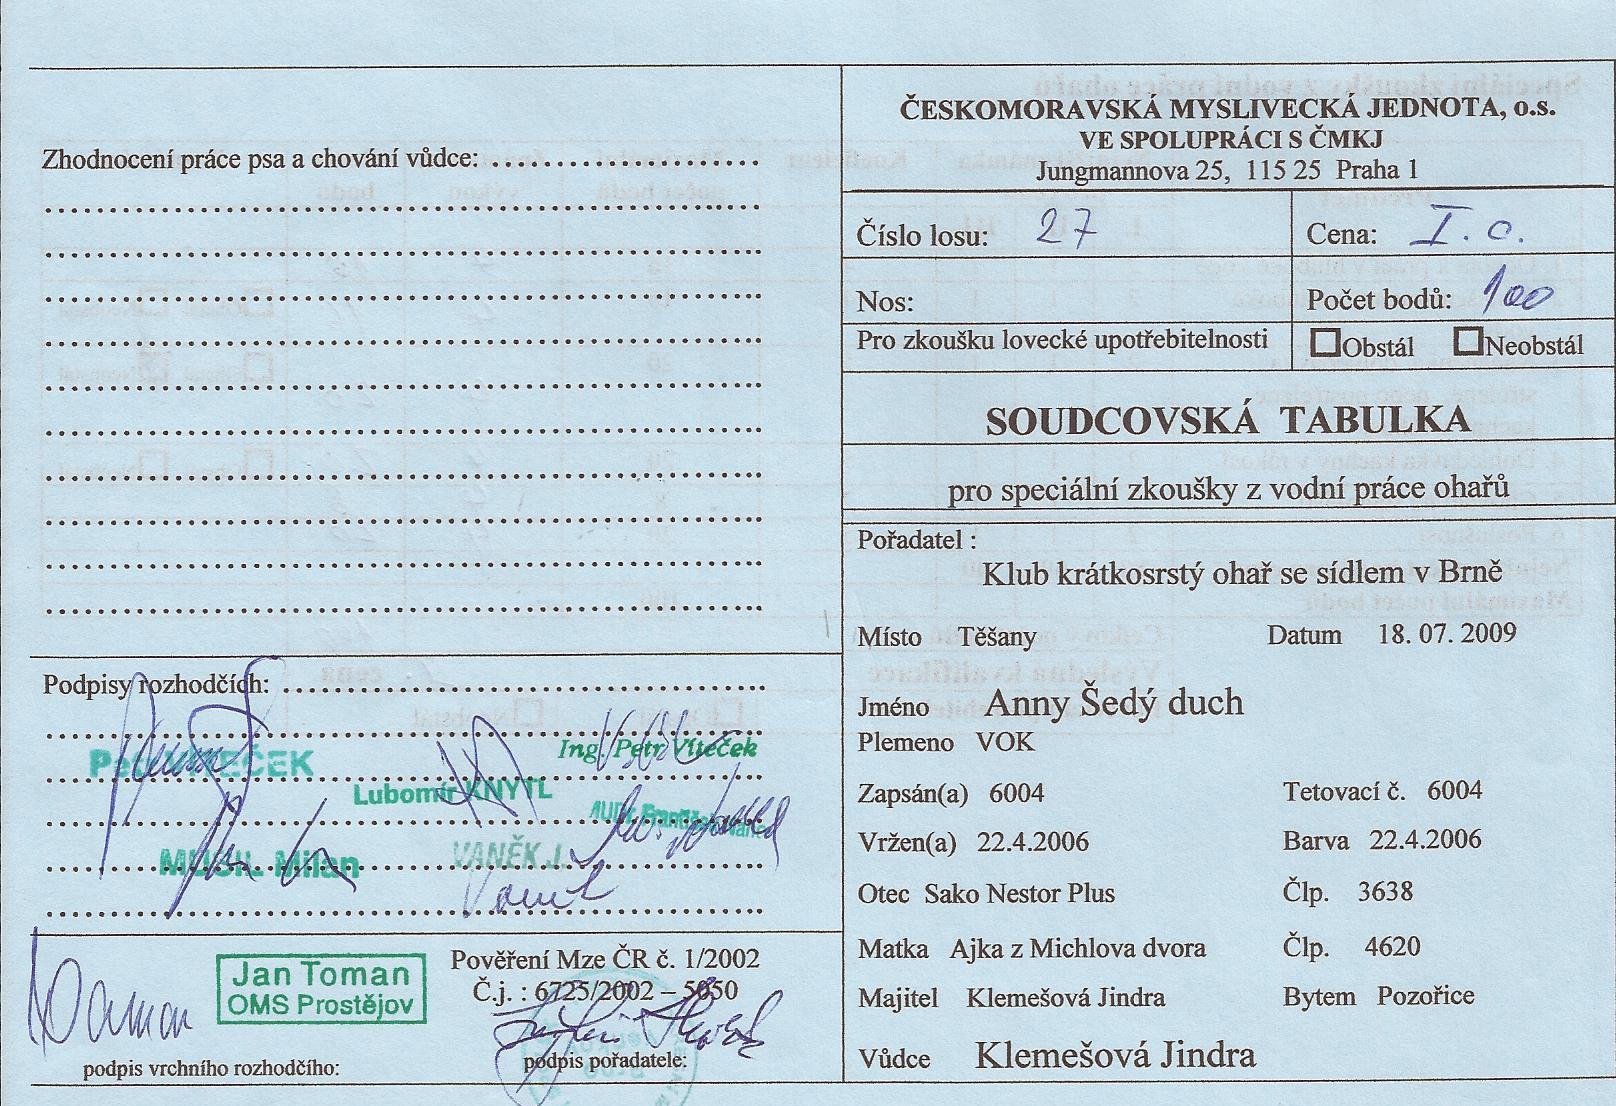 Zhodnocení práce psa a chování vůdce:
Podpisy rozhodčích:
Ing. Petr Víteček
Lubomír KNYTL
MUSIL Milan
VANĚK J.
Jan Toman
OMS Prostějov
podpis vrchního rozhodčího:
Pověření Mze ČR č. 1/2002
Č.j. : 6725/2002 – 5050
podpis pořadatele:
ČESKOMORAVSKÁ MYSLIVECKÁ JEDNOTA, o.s.
VE SPOLUPRÁCI S ČMKJ
Jungmannova 25, 115 25 Praha 1
Číslo losu: 27
Cena: I. c.
Nos:
Počet bodů: 100
Pro zkoušku lovecké upotřebitelnosti
Obstál Neobstál
SOUDCOVSKÁ TABULKA
pro speciální zkoušky z vodní práce ohařů
Pořadatel :
Klub krátkosrstý ohař se sídlem v Brně
Místo Těšany Datum 18. 07. 2009
Jméno Anny Šedý duch
Plemeno VOK
Zapsán(a) 6004 Tetovací č. 6004
Vržen(a) 22.4.2006 Barva 22.4.2006
Otec Sako Nestor Plus Člp. 3638
Matka Ajka z Michlova dvora Člp. 4620
Majitel Klemešová Jindra Bytem Pozořice
Vůdce Klemešová Jindra